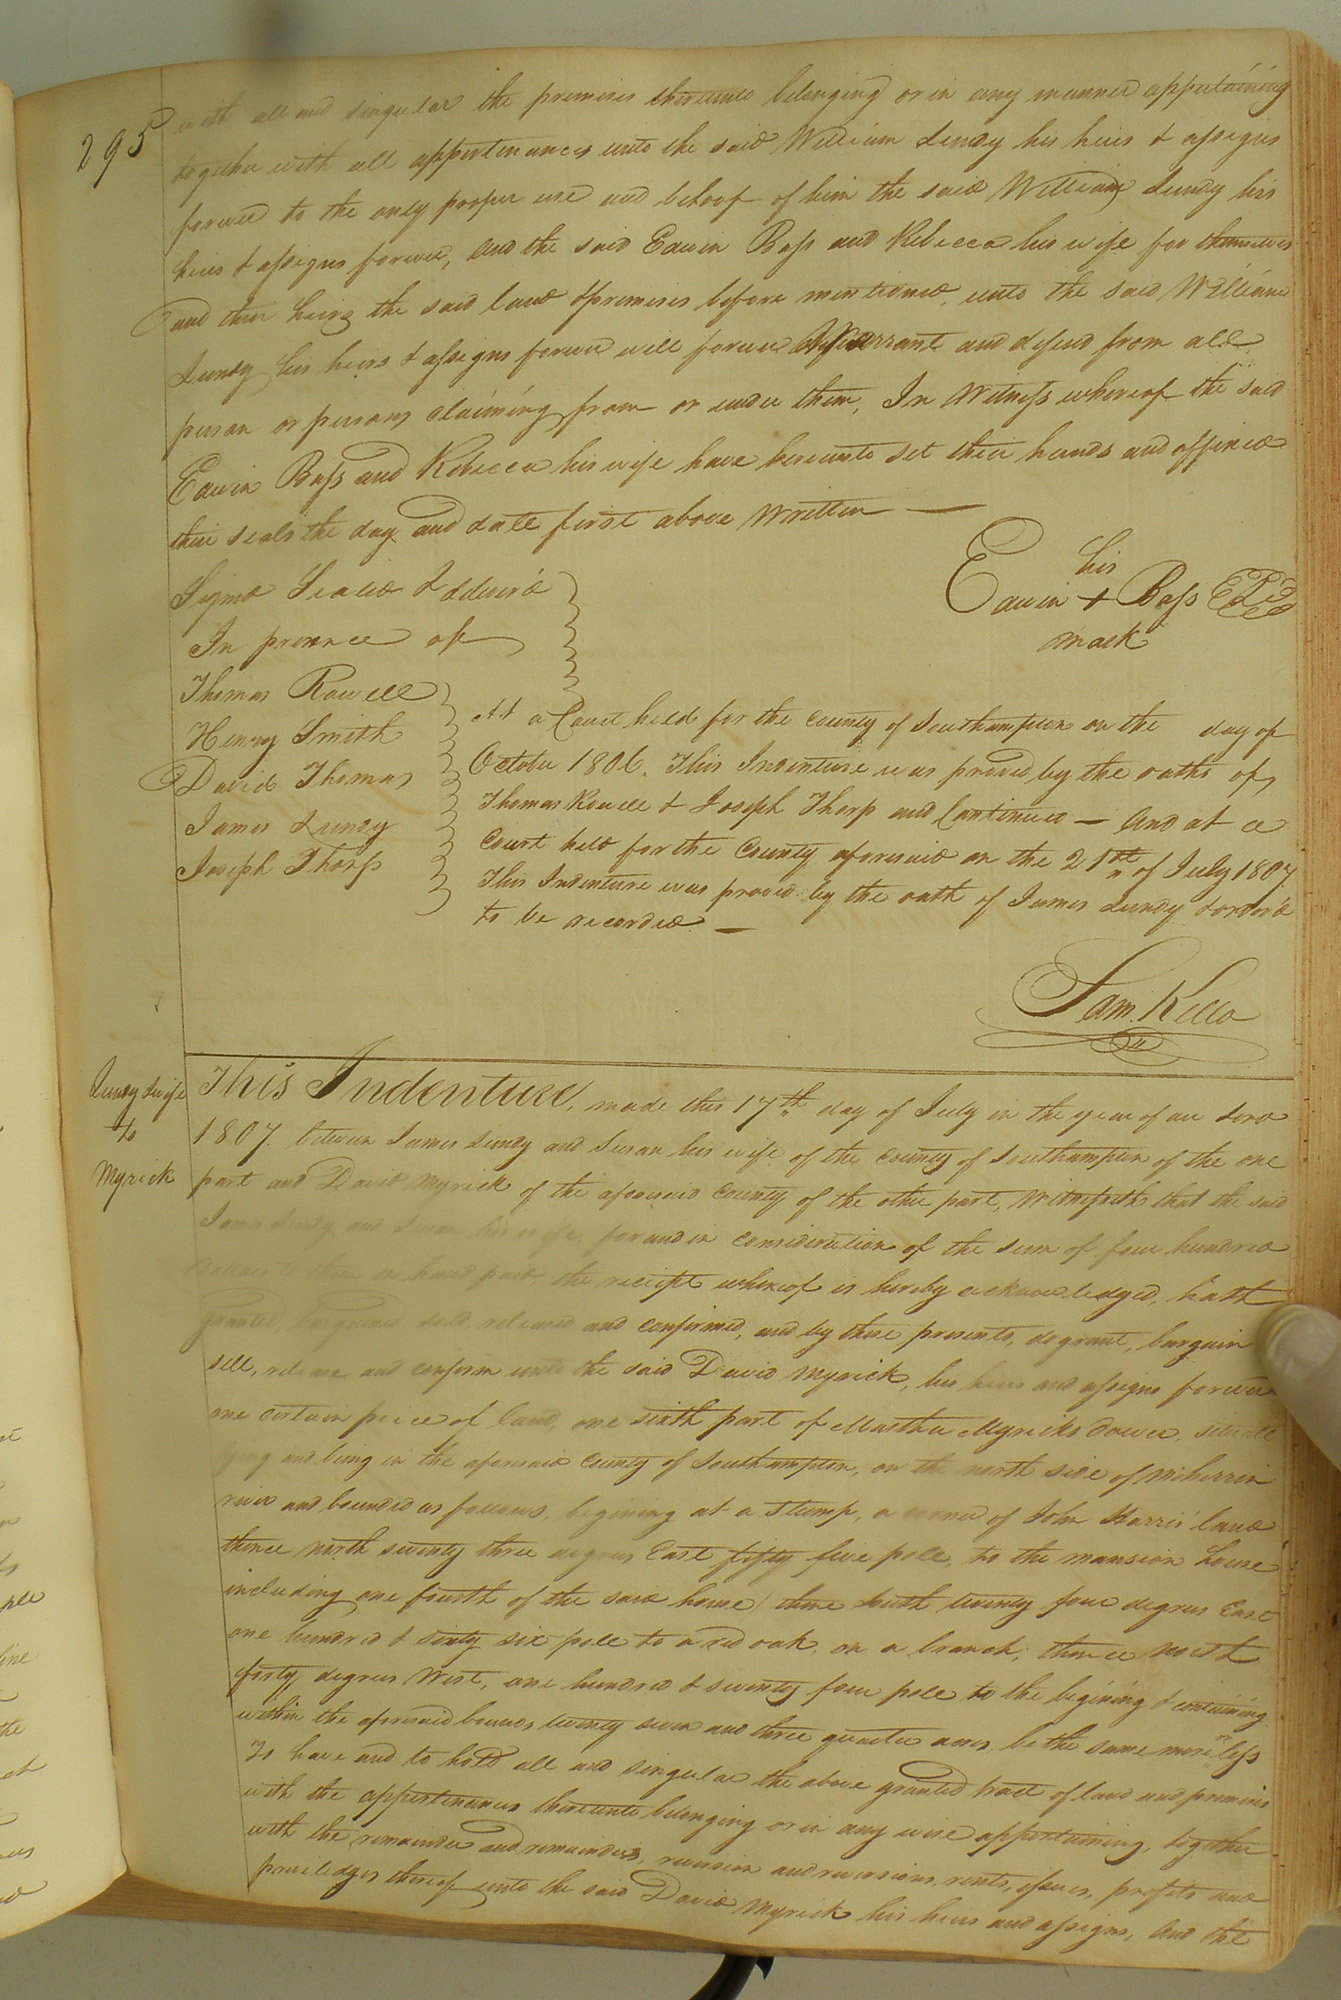 295
with all and singular the premises thereunto belonging or in any manner appertaining
together with all appertenances unto the said William Lundy his heirs & assigns
forever to the only proper use and behoof of him the said William Lundy his
heirs & assigns forever, and the said Edwin Bass and Rebecca his wife for themselves
and their heirs the said land & premises before mentioned, unto the said William
Lundy his heirs & assigns forever will forever Warrant and defend from all
person or persons claiming from or under them, In Witness whereof the said
Edwin Bass and Rebecca his wife have hereunto set their hands and affixed
their seals the day and date first above Written —
Signd Seald & deliver'd
In presence of
his
Edwin + Bass
mark
Thomas Rowell
Henry Smith
David Thomas
James Lundy
Joseph Thorp
At a Court held for the County of Southampton on the day of
October 1806. This Indenture was proved by the oaths of
Thomas Rowell & Joseph Thorp and Continued — And at a
Court held for the County aforesaid on the 21st of July 1807.
This Indenture was proved by the oath of James Lundy & order'd
to be recorded —
Sam. Kello
Lundy & wife
to
Myrick
This Indenture, made this 17th day of July in the year of our Lord
1807. between James Lundy and Susan his wife of the County of Southampton of the one
part and David Myrick of the aforesaid County of the other part, Witnesseth that the said
James Lundy and Susan his wife for and in consideration of the sum of four hundred
dollars to them in hand paid, the receipt whereof is hereby acknowledged, hath
granted, bargained sold, released and confirmed, and by these presents, do grant, bargain
sell, release and confirm unto the said David Myrick, his heirs and assigns forever
one certain piece of land, one sixth part of Martha Myricks dower, situate
lying and being in the aforesaid County of Southampton, on the north side of Meherrin
river and bounded as follows, begining at a stump, a corner of John Harris' land
thence north seventy three degrees East fifty five pole, to the mansion house
including one fourth of the said house) thence South twenty four degrees East
one hundred & sixty six pole to a red oak, on a branch; thence north
forty degrees West, one hundred & seventy four pole to the begining & containing
within the aforesaid bounds twenty seven and three quarter acres, be the same more or less
To have and to hold all and singular the above granted tract of land and premises
with the appertenances thereunto belonging or in any wise appertaining, together
with the remainder and remainders, reversion and reversions, rents, issues, profits and
priviledges thereof unto the said David Myrick his heirs and assigns, And the